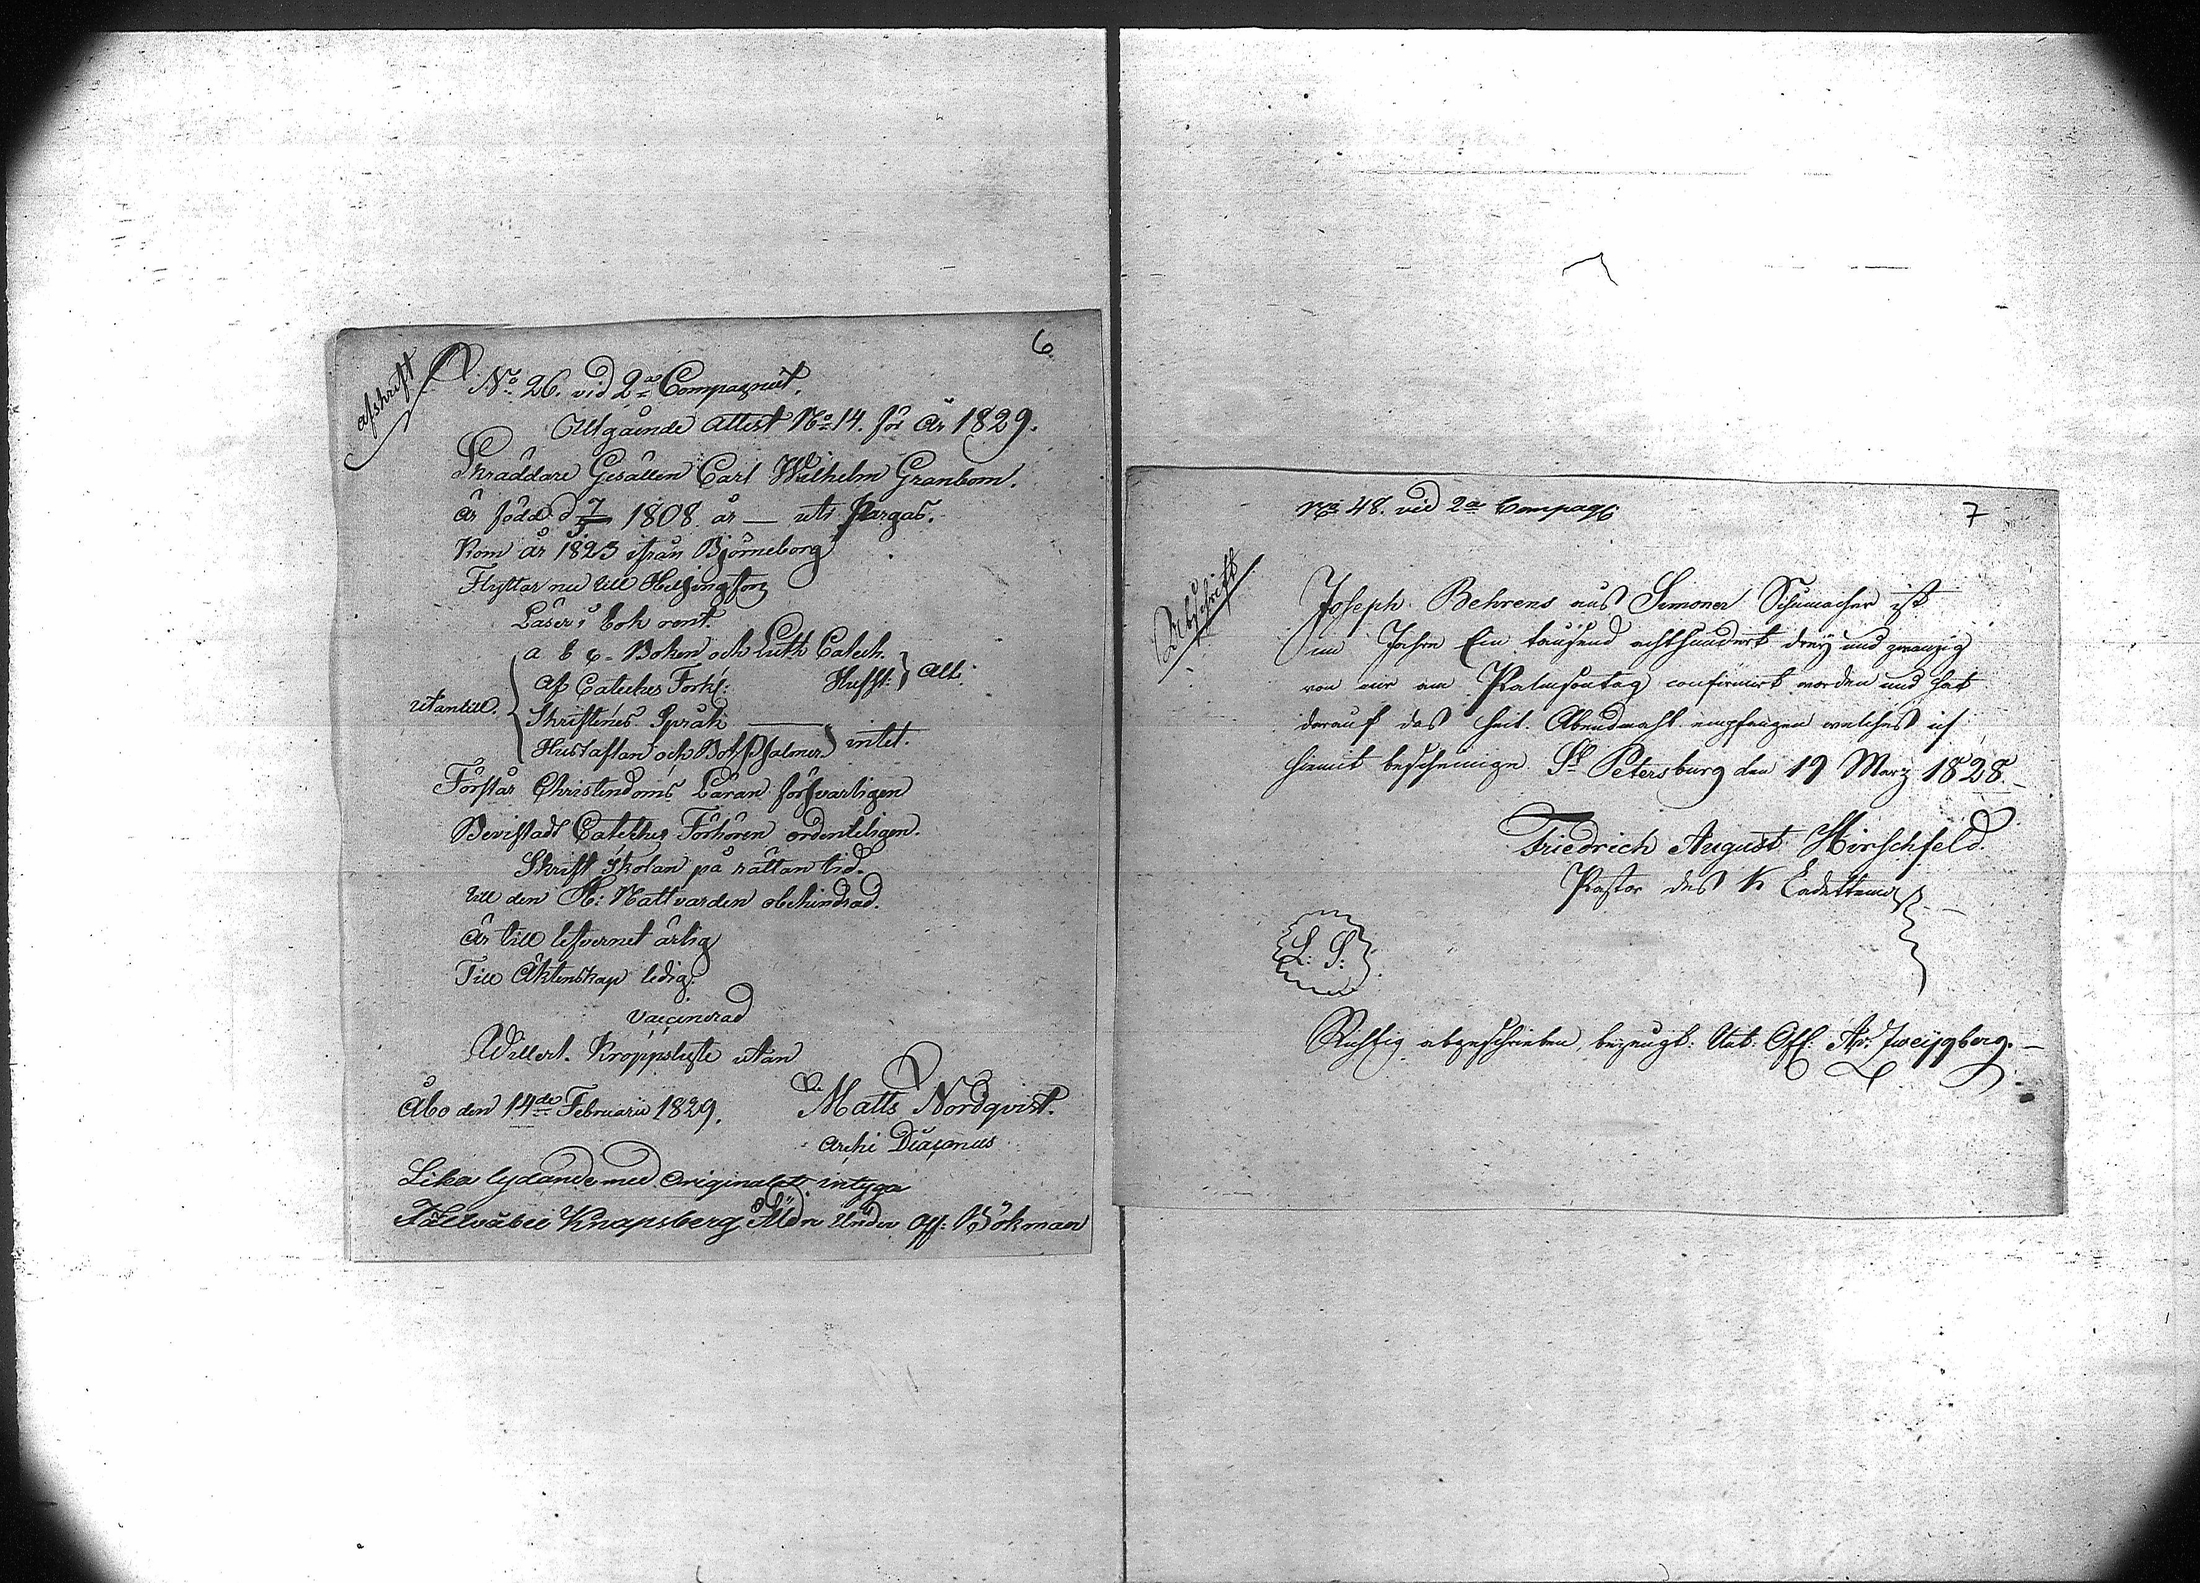 6
afskrift
No 26. vid 2a Compagniet.
Utgående Attest No 14. för år 1829.
Skräddare Gesällen Carl Wilhelm Granbom.
är född d 7/5 1808 år — uti Pargas.
Kom år 1823 ifrån Björneborg
Flyttar nu till Helsingfors
Läser i bok rent.
a b c - Boken och Luth Catech.
af Cateches Förkl: Hufst: } Allt.
utantill. { Skriftenes Språk —
Hustaflan och BotPsalmer } intet.
Förstår Christendoms Läran försvarligen
Bevistadt Cateches Förhören ordenteligen.
Skriftskolan på rättan tid.
till den H: Nattvarden obehindrad.
är till lefvernet ärlig
Till Äktenskap ledig.
Vaccinerad
Kroppslyte utan
Åbo den 14de Februarii 1829.
Matts Nordqvist.
Archi Diaconus
Lika lydande med Originalet intyga
Fältväbel Knapsberg Under Off: Bökman
7
No 48. vid 2a Compag
Abschrift
Joseph Behrens aus Simonea Schumacher ist
im Jahre Ein tausend achthundert drey und zwanzig
von mir am Palmsontag confirmirt worden und hat
darauf das heil. Abendmahl empfangen welches ich
hiemit bescheinige. St Petersburg den 19 Marz 1828.
Friedrich August Hirschfeld.
Pastor des K Cadettencorps
L: S:
Richtig abgeschrieben, bezeugt: Unt: Off: Ar: Zweygberg.